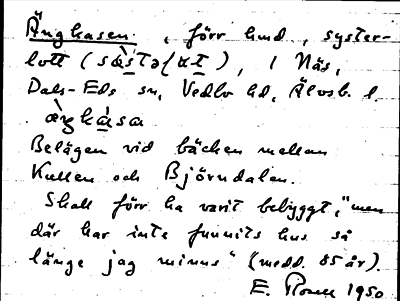 Änghasen, förr hmd, syster-
lott (), i Näs,
Dals-Eds sn, Vedbo hd, Älvsb. l.
Belägen vid bäcken mellan
Kullen och Björndalen.
Skall förr ha varit bebyggt, "men
där har inte funnits hus så
länge jag minns" (medd. 85 år).
E. 1950